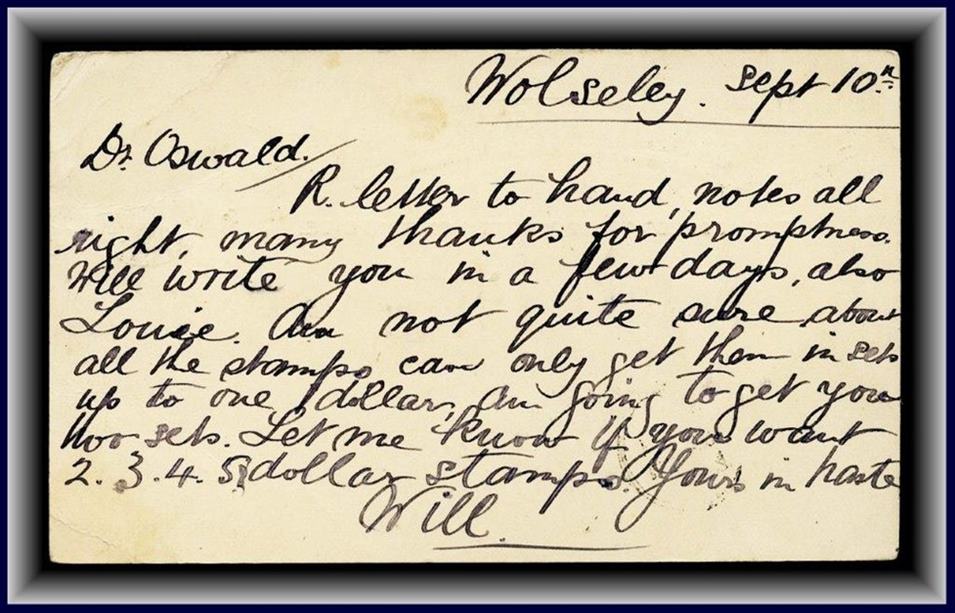 Wolseley. Sept 10th
Dr. Oswald.
R. letter to hand, notes all
right, many thanks for promptness.
Will write you in a few days, also
Louie. Am not quite sure about
all the stamps can only get them in sets
up to one dollar, am going to get you
two sets. Let me know if you want
2. 3. 4. 5 dollar stamps. Yours in haste
Will.